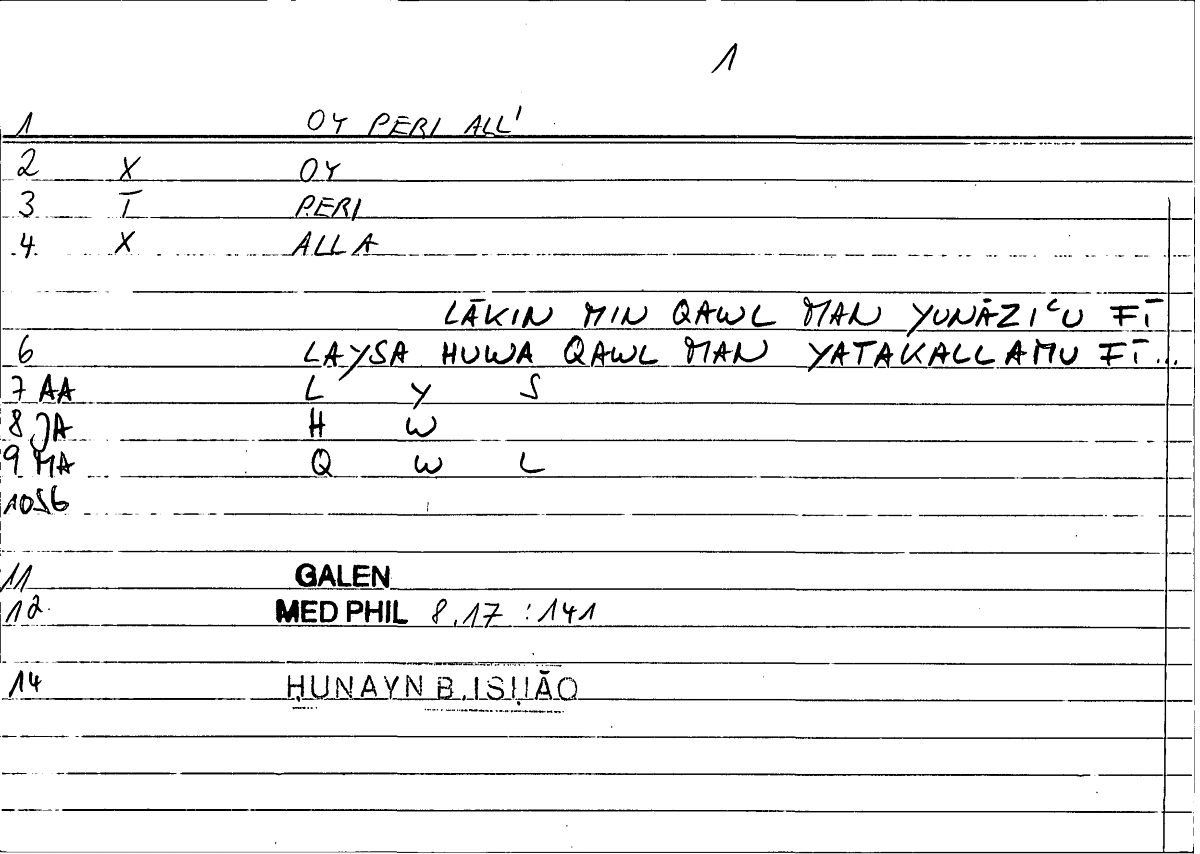 1
1 OY PERI ALL'
2 X OY
3 Ī PERI
4. X ALLA
LĀKIN MIN QAWL MAN YUNĀZIʿU FĪ
6 LAYSA HUWA QAWL MAN YATAKALLAMU FĪ...
7 AA L Y S
8 JA H W
9 MA Q W L
10 SG
11 GALEN
12 MED PHIL 8.17 :141
14 ḤUNAYN B. ISḤĀQ